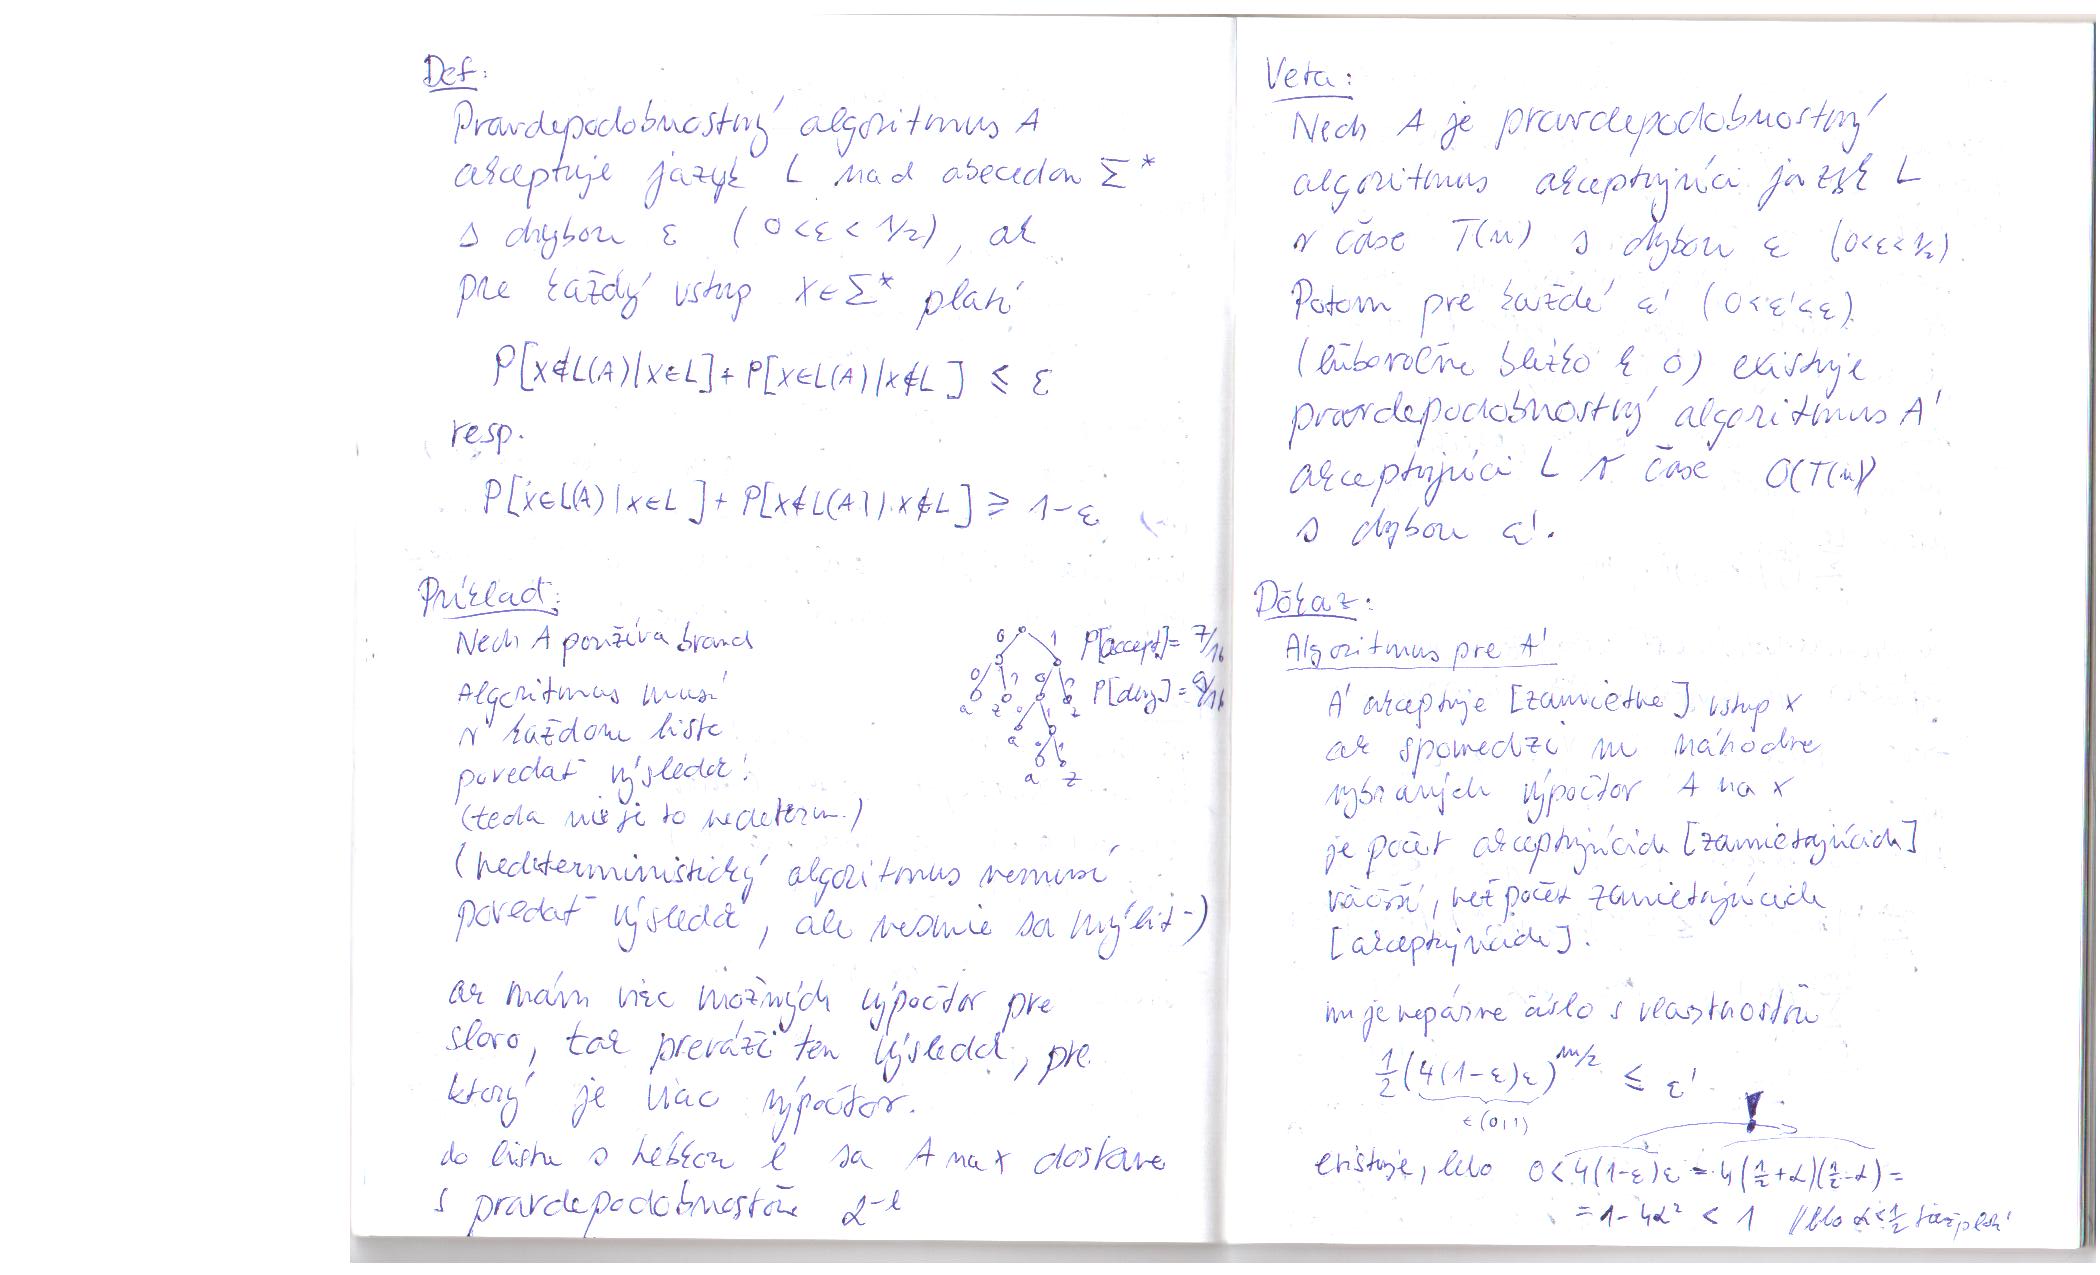 Def:
Pravdepodobnostný algoritmus A
akceptuje jazyk L nad abecedou Σ*
s chybou ε (0<ε<1/2), ak
pre každý vstup x∈Σ* platí
P[x∉L(A)|x∈L]+P[x∈L(A)|x∉L] ≤ ε
resp.
P[x∈L(A)|x∈L]+P[x∉L(A)|x∉L] ≥ 1-ε
Príklad:
Nech A používa brand
Algoritmus musí
v každom liste
povedať výsledok!
(teda nie je to nedeterm.)
(nedeterministický algoritmus nemusí
povedať výsledok, ale nesmie sa mýliť)
0 1 P[accept]=7/16
0 1 0 1 P[deny]=9/16
a z 0 1 z
a 0 1
a z
ak mám viac možných výpočtov pre
slovo, tak preváži ten výsledok, pre
ktorý je viac výpočtov.
do listu s hĺbkou l sa A na x dostane
s pravdepodobnosťou 2^-l
Veta:
Nech A je pravdepodobnostný
algoritmus akceptujúci jazyk L
v čase T(n) s chybou ε (0<ε<1/2).
Potom pre každé ε' (0<ε'<ε)
(ľubovoľne blízko k 0) existuje
pravdepodobnostný algoritmus A'
akceptujúci L v čase O(T(n))
s chybou ε'.
Dôkaz:
Algoritmus pre A'
A' akceptuje [zamietne] vstup x
ak spomedzi m náhodne
vybraných výpočtov A na x
je počet akceptujúcich [zamietajúcich]
väčší, než počet zamietajúcich
[akceptujúcich].
m je nepárne číslo s vlastnosťou
1/2(4(1-ε)ε)^m/2 ≤ ε'
∈(0,1)
!
existuje, lebo 0<4(1-ε)ε = 4(1/2+α)(1/2-α)=
=1-4α² < 1 //lebo α<1/2 tiež platí